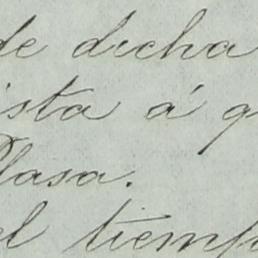 de dicha
ista á q
Plasa.
el tiemp